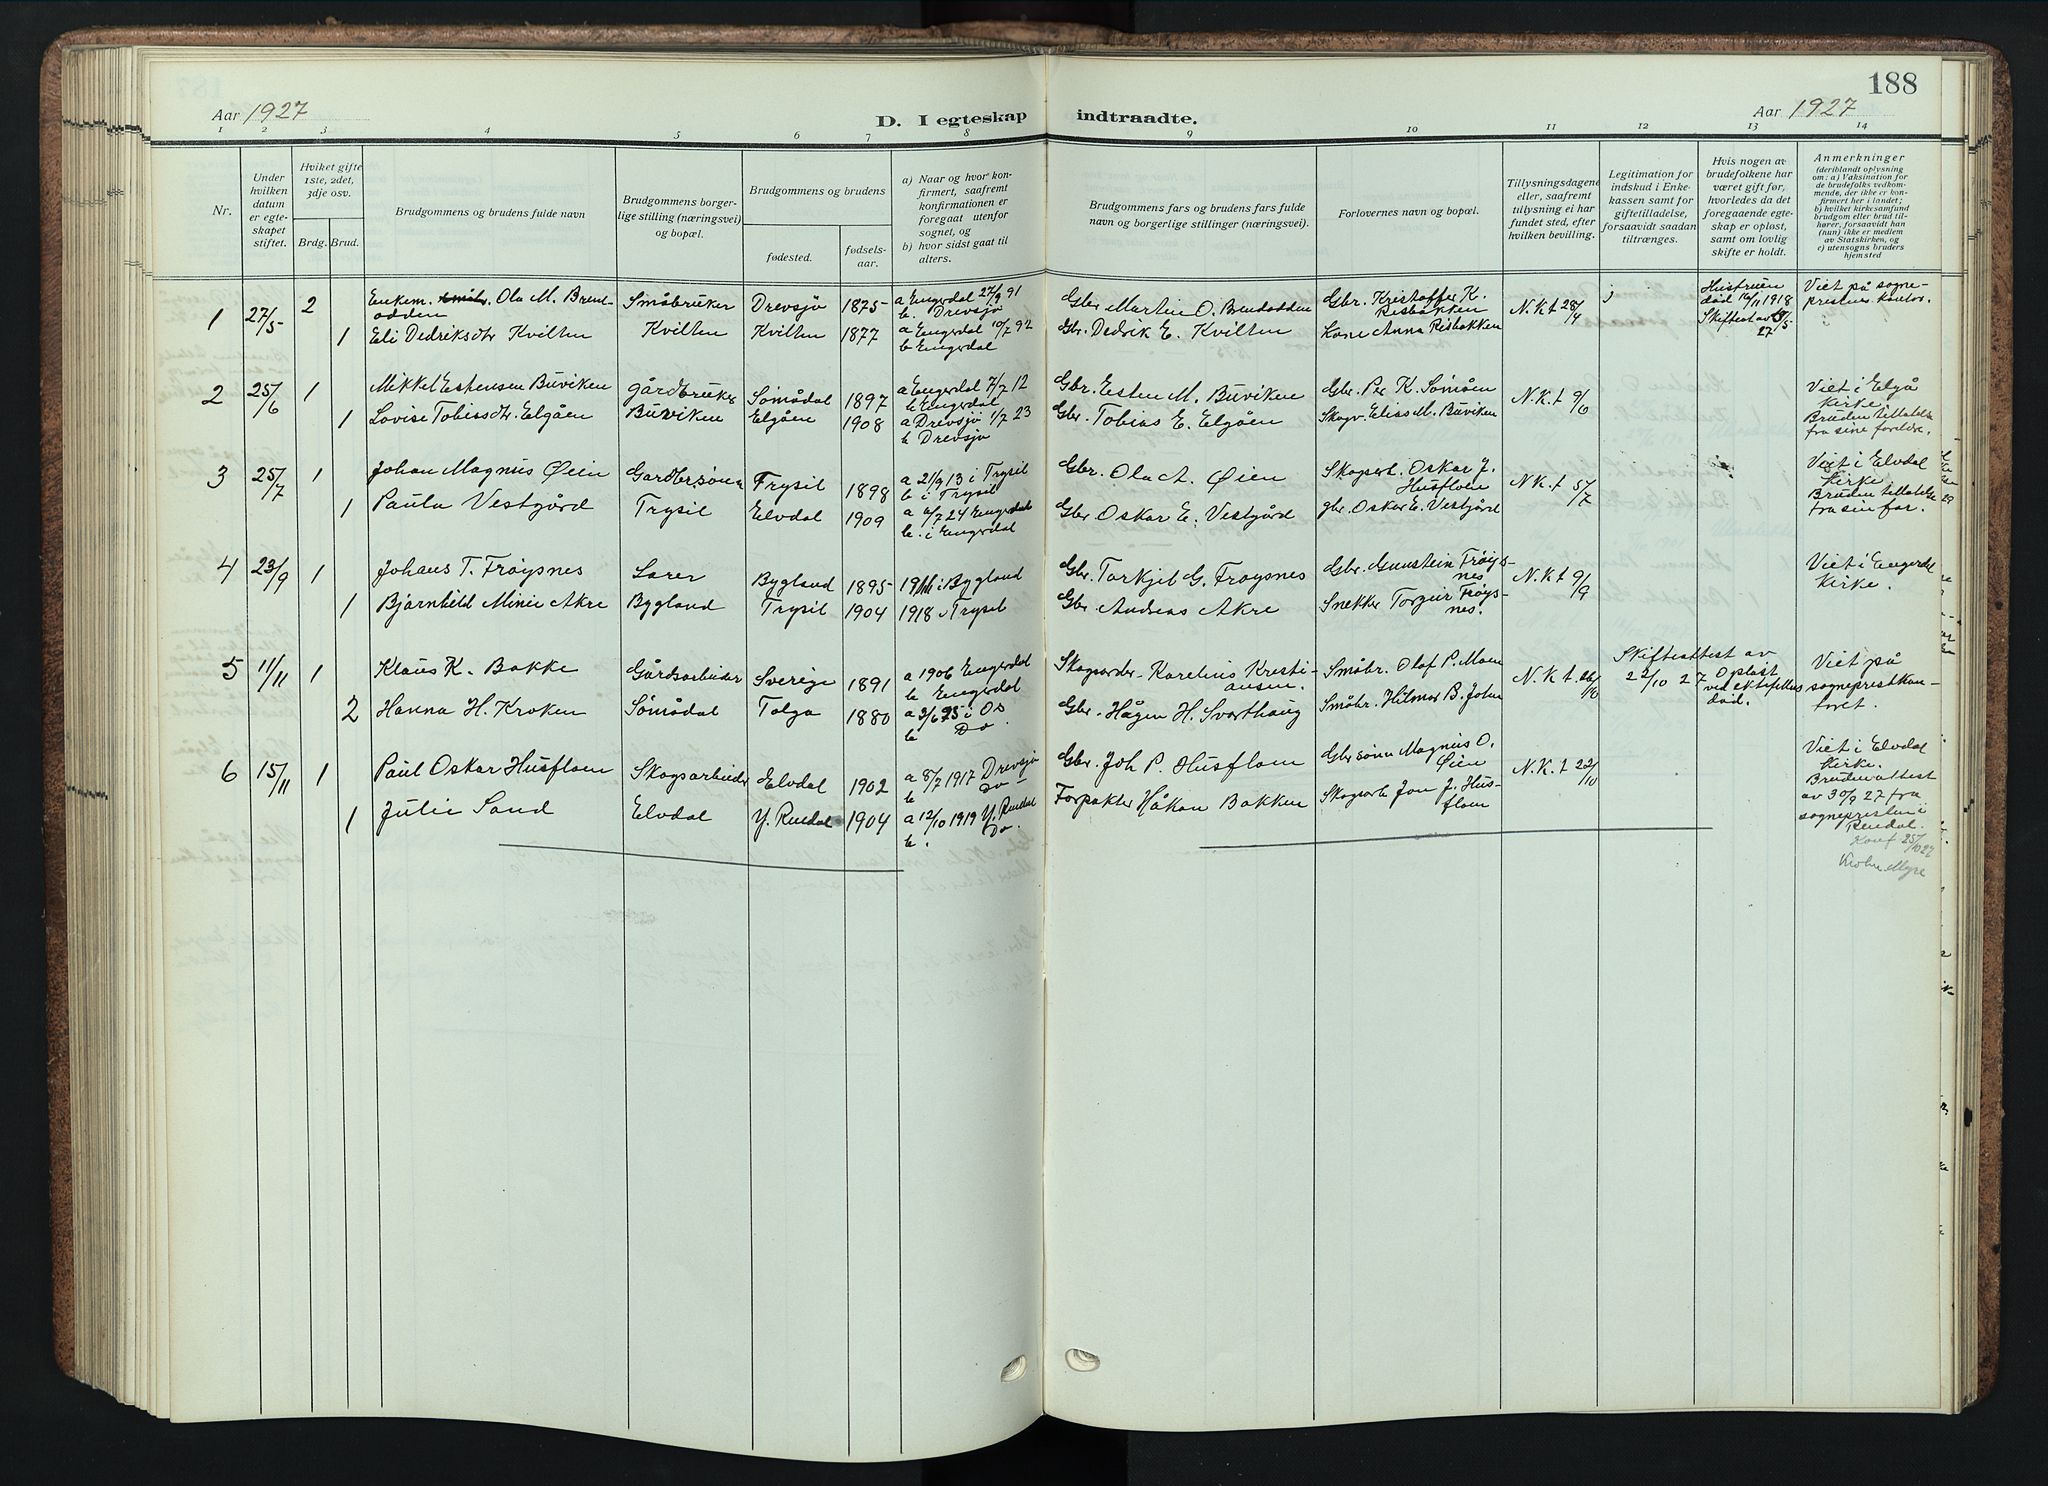 188
Aar 1927
D. I egteskap indtraadte.
Aar 1927
1 2 3 4 5 6 7 8 9 10 11 12 13 14
Nr.
Under hvilken datum er egteskapet stiftet.
Hviket gifte 1ste, 2det, 3dje osv.
Brdg. Brud.
Brudgommens og brudens fulde navn
Brudgommens borgerlige stilling (næringsvei) og bopæl.
Brudgommens og brudens
fødested.
fødselsaar.
a) Naar og hvor konfirmert, saafremt konfirmationen er foregaat utenfor sognet, og
b) hvor sidst gaat til alters.
Brudgommens fars og brudens fars fulde navn og borgerlige stillinger (næringsvei).
Forlovernes navn og bopæl.
Tillysningsdagene eller, saafremt tillysning ei har fundet sted, efter hvilken bevilling.
Legitimation for indskud i Enkekassen samt for giftetilladelse, forsaavidt saadan tiltrænges.
Hvis nogen av brudefolkene har været gift før, hvorledes da det foregaaende egteskap er opløst, samt om lovlig skifte er holdt.
Anmerkninger (deriblandt oplysning om: a) Vaksination for de brudefolks vedkommende, der ikke er konfirmert her i landet; b) hvilket kirkesamfund brudgom eller brud tilhører, forsaavidt han (hun) ikke er medlem av Statskirken, og c) utensogns bruders hjemsted
1 27/5 2 Enkem. Ola M. Brendodden Småbruker Drevsjø 1875 a Engerdal 27/9 91 b. Drevsjø Gbr Martin O. Brendodden Gbr. Kristoffer K. Risbakken N.K. t 28/4 Hustruen død 16/11 1918 Skifteat av 27 Viet på sogneprestens kontor.
1 Eli Dedriksdtr Kvilten Kvilten Kvilten 1877 a Engerdal 10/7 92 b Engerdal Gbr. Dedrik E. Kvilten Kone Anna Risbakken
2 25/6 1 Mikkel Estensen Buviken gårdbruker Sømådal 1897 a Engerdal 7/7 12 b Engerdal Gbr. Esten M. Buviken Gbr. Per K. Sømåen N.K. t 9/6 Viet i Elgå Kirke.
1 Lovise Tobiasdtr. Elgåen Buviken Elgåen 1908 a Drevsjø 1/7 23 b Drevsjø Gbr. Tobias E. Elgåen Skogv. Elias M. Buviken Bruden tillatelse fra sine foreldre.
3 25/7 1 Johan Magnus Øien Gardbrsønn Trysil 1898 a 21/9 13 i Trysil b. i Trysil Gbr. Ola A. Øien Skogsarb. Oskar J. Husfloen N.K. t 5/7 Viet i Elvdal Kirke.
1 Paula Vestgård Trysil Elvdal 1909 24 Engerdal b. i Engerdal Gbr Oskar E. Vestgård gbr. Oskar E. Vestgård Bruden tillatelse fra sin far.
4 23/9 1 Johans T. Frøysnes Lærer Bygland 1895 i Bygland Gbr. Torkjel G. Frøysnes Gbr. Gunstein Frøysnes N.K. t 9/9 Viet i Engerdal Kirke.
1 Bjørnhild Minie Akre Bygland Trysil 1904 1918 i Trysil Gbr. Andreas Akre Snekker Torgur Frøysnes.
5 11/11 1 Klaus K. Bakke Gårdsarbeider Sverige 1891 a 1906 Engerdal b Engerdal Skogsarbder Karelius Kristiansen. Småbr. Olaf P. Moen N.K. t 26/10 Skifteattest av 22/10 27 Opløst ved ektefelles død. Viet på sogneprestkontoret.
2 Hanna H. Kroken Sømådal Tolga 1880 a 3/6 95 i Os b Do Gbr. Hågen H. Svarthaug Småbr. Hilmar B. John
6 15/11 1 Paul Oskar Husfloen Skogsarbeider Elvdal 1902 a 8/7 1917 Drevsjø b Do Gbr. Joh P. Husfloen Gbrsønn Magnus O. Øien N.K. t 22/10 Viet i Elvdal Kirke.
1 Julie Sand Elvdal Y. Rendal 1904 a 12/10 1919 Y. Rendal b. Do. Forpakter Håkon Bakken Skogsarb Jon J. Husfloen Brudenattest av 30/9 27 fra sognepresten i Rendal.
Konf 25/10 27
Myre